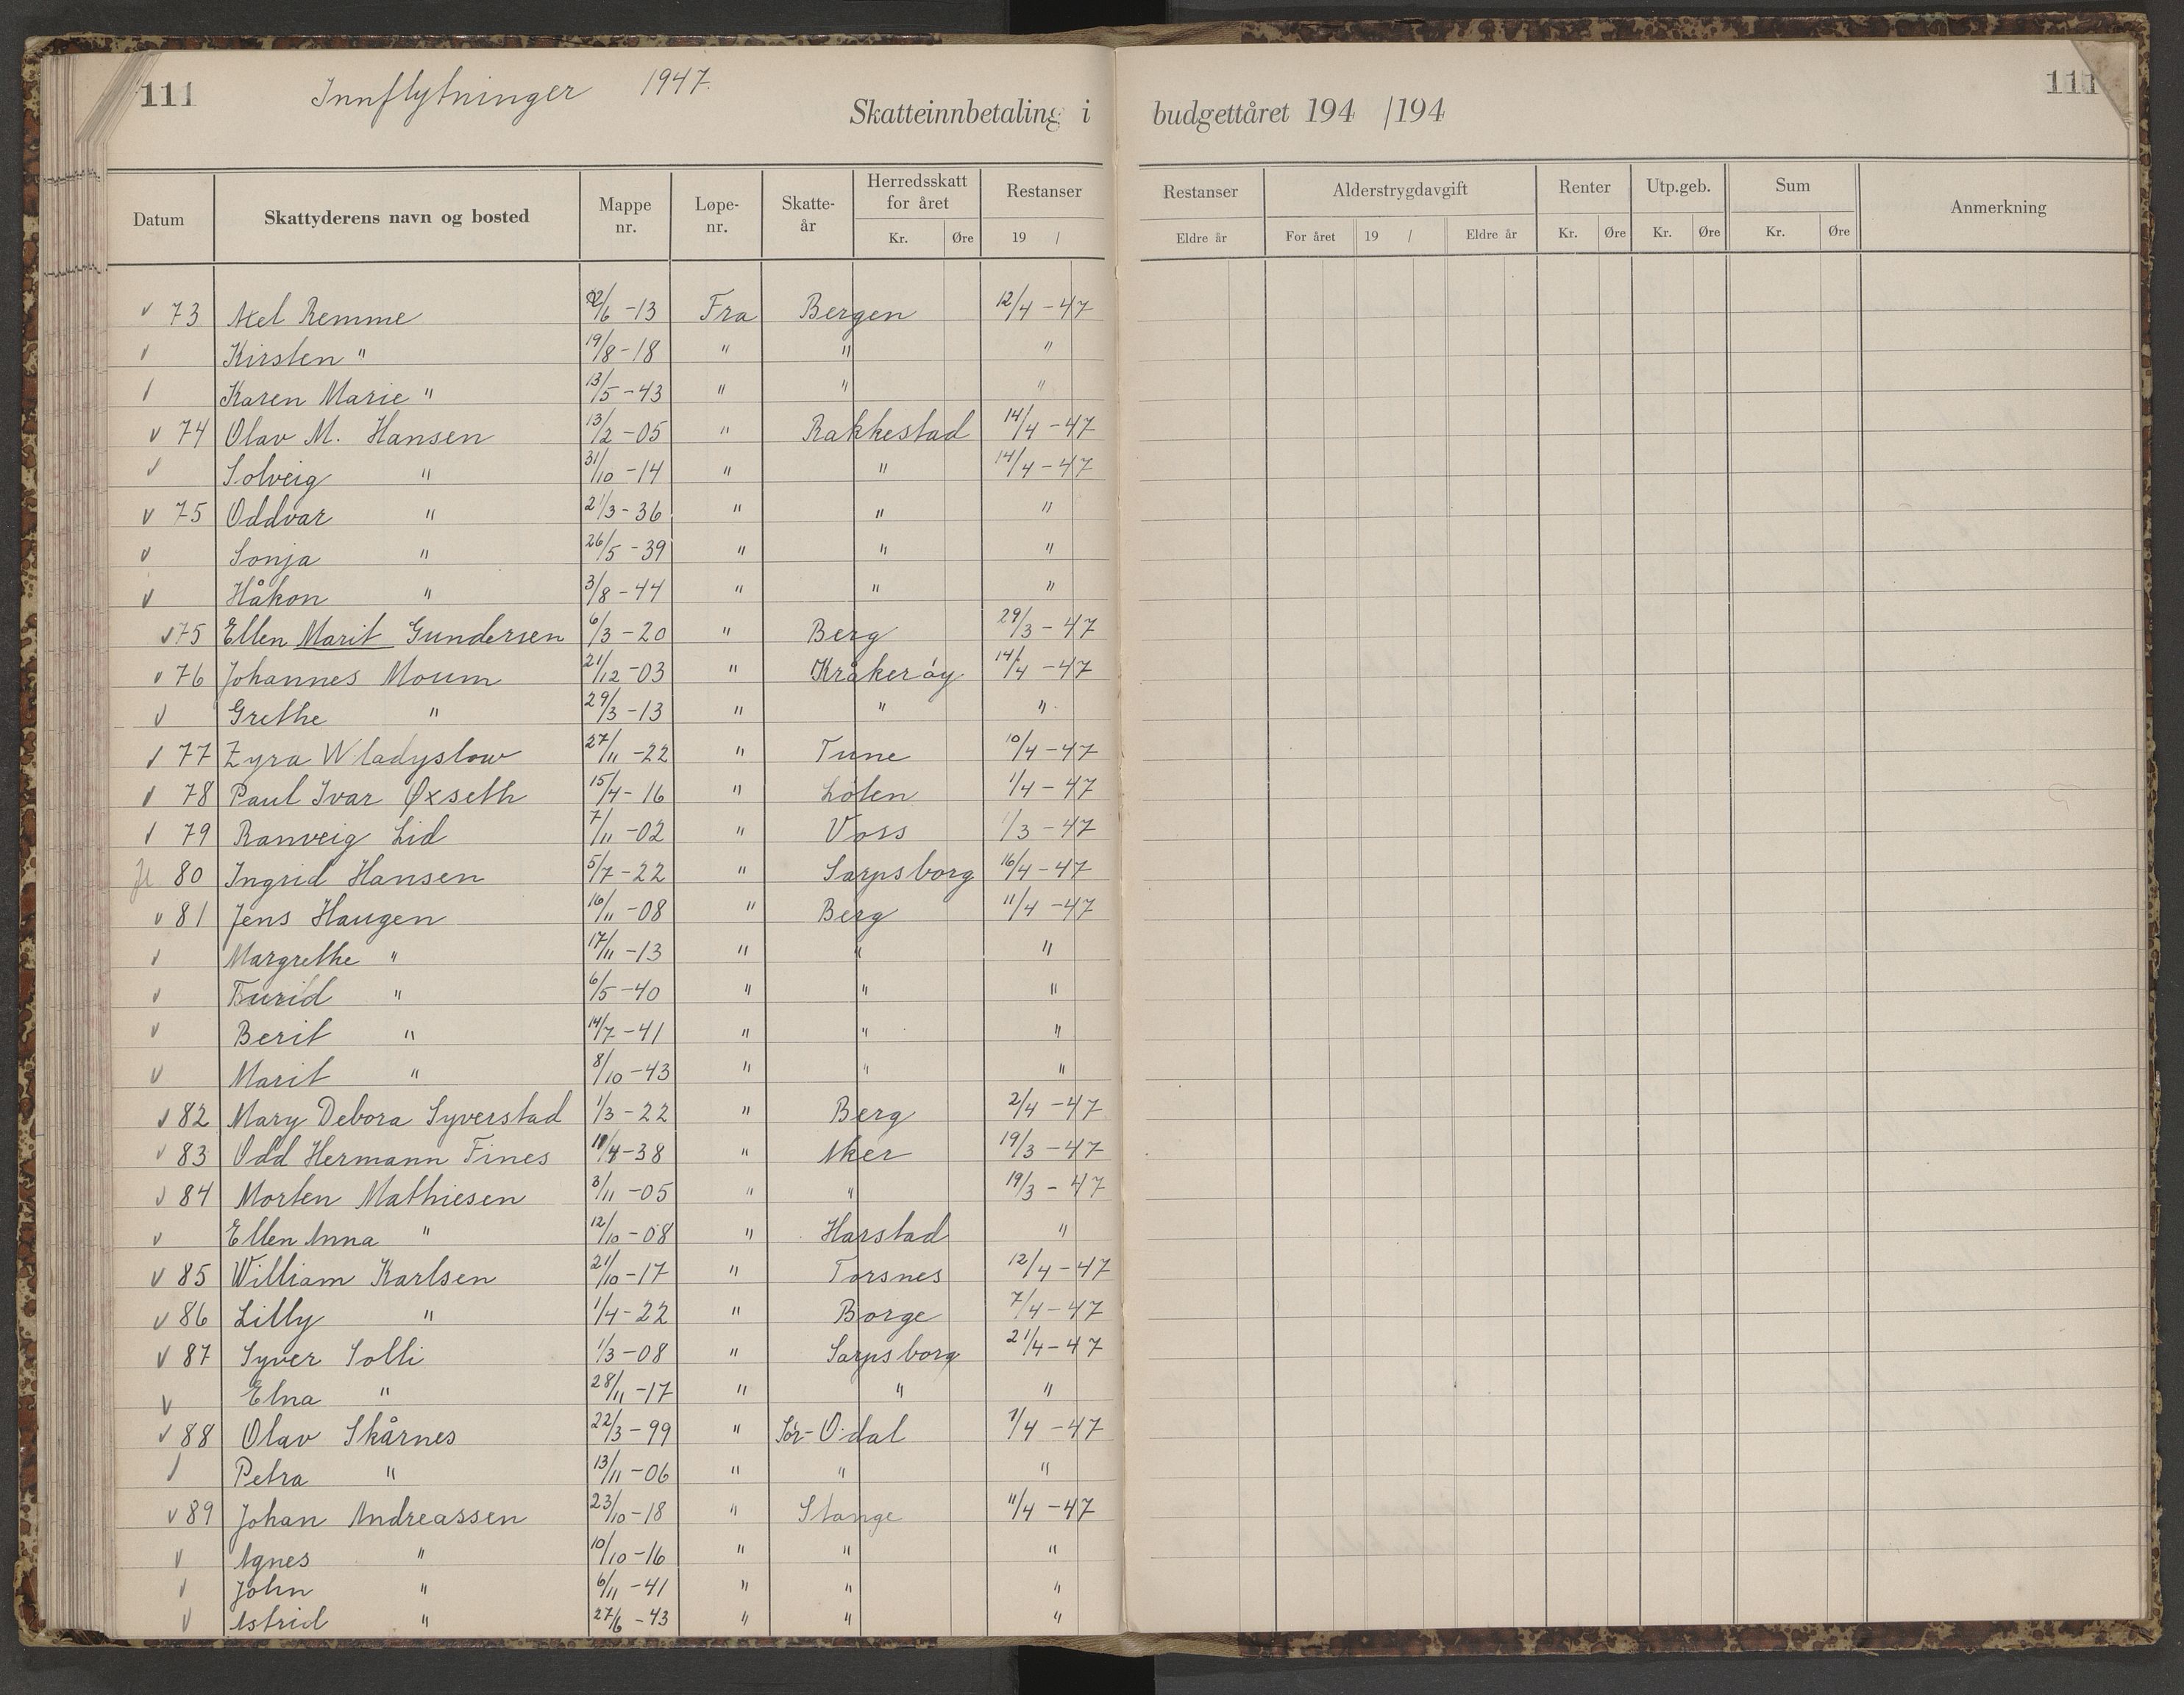 111 Innflytninger 1947. 111
Skatteinnbetaling i budgettåret 194 /194
Datum Skattyderens navn og bosted Mappe nr. Løpe-nr. Skatte-år Herredsskatt for året Kr. Øre Restanser 19 / Restanser Eldre år Alderstrygdavgift For året 19 / Eldre år Renter Kr. Øre Utp.geb. Kr. Øre Sum Kr. Øre Anmerkning
v 73 Axel Remme /6 -13 Fra Bergen 12/4 -47
v Kirsten " 19/8 -18 " " "
v Karen Marie " 13/5 -43 " " "
v 74 Olav M. Hansen 13/2 -05 " Rakkestad 14/4 -47
v Solveig " 31/10 -14 " " 14/4 -47
v 75 Oddvar " 21/3 -36 " " "
v Sonja " 26/5 -39 " " "
v Håkon " 3/8 -44 " " "
v 75 Ellen Marit Gundersen 6/3 -20 " Berg 29/3 -47
v 76 Johannes Moum 21/12 -03 " Kråkerøy 14/4 -47
v Grethe " 29/3 -13 " " "
v 77 Zyra Wladyslow 27/11 -22 " Tune 10/4 -47
v 78 Paul Ivar Øxseth 15/4 -16 " Løten 1/4 -47
v 79 Ranveig Lid 7/11 -02 " Voss 1/3 -47
80 Ingrid Hansen 5/7 -22 " Sarpsborg 16/4 -47
v 81 Jens Haugen 16/11 -08 " Berg 11/4 -47
v Margrethe " 17/11 -13 " " "
v Turid " 6/5 -40 " " "
v Berit " 14/7 -41 " " "
v Marit " 8/10 -43 " " "
v 82 Mary Debora Syverstad 1/3 -22 " Berg 2/4 -47
v 83 Odd Hermann Fines 11/4 -38 " Aker 19/3 -47
v 84 Morten Mathiesen 3/11 -05 " " 19/3 -47
v Ellen Anna " 12/10 -08 " Harstad "
v 85 William Karlsen 21/10 -17 " Torsnes 12/4 -47
v 86 Lilly " 1/4 -22 " Borge 7/4 -47
v 87 Syver Solli 1/3 -08 " Sarpsborg 21/4 -47
v Elna " 28/11 -17 " " "
v 88 Olav Skårnes 22/3 -99 " Sør-Odal 1/4 -47
v Petra " 13/11 -06 " " "
v 89 Johan Andreassen 23/10 -18 " Stange 11/4 -47
v Agnes " 10/10 -16 " " "
v John " 6/11 -41 " " "
v Astrid " 27/6 -43 " " "